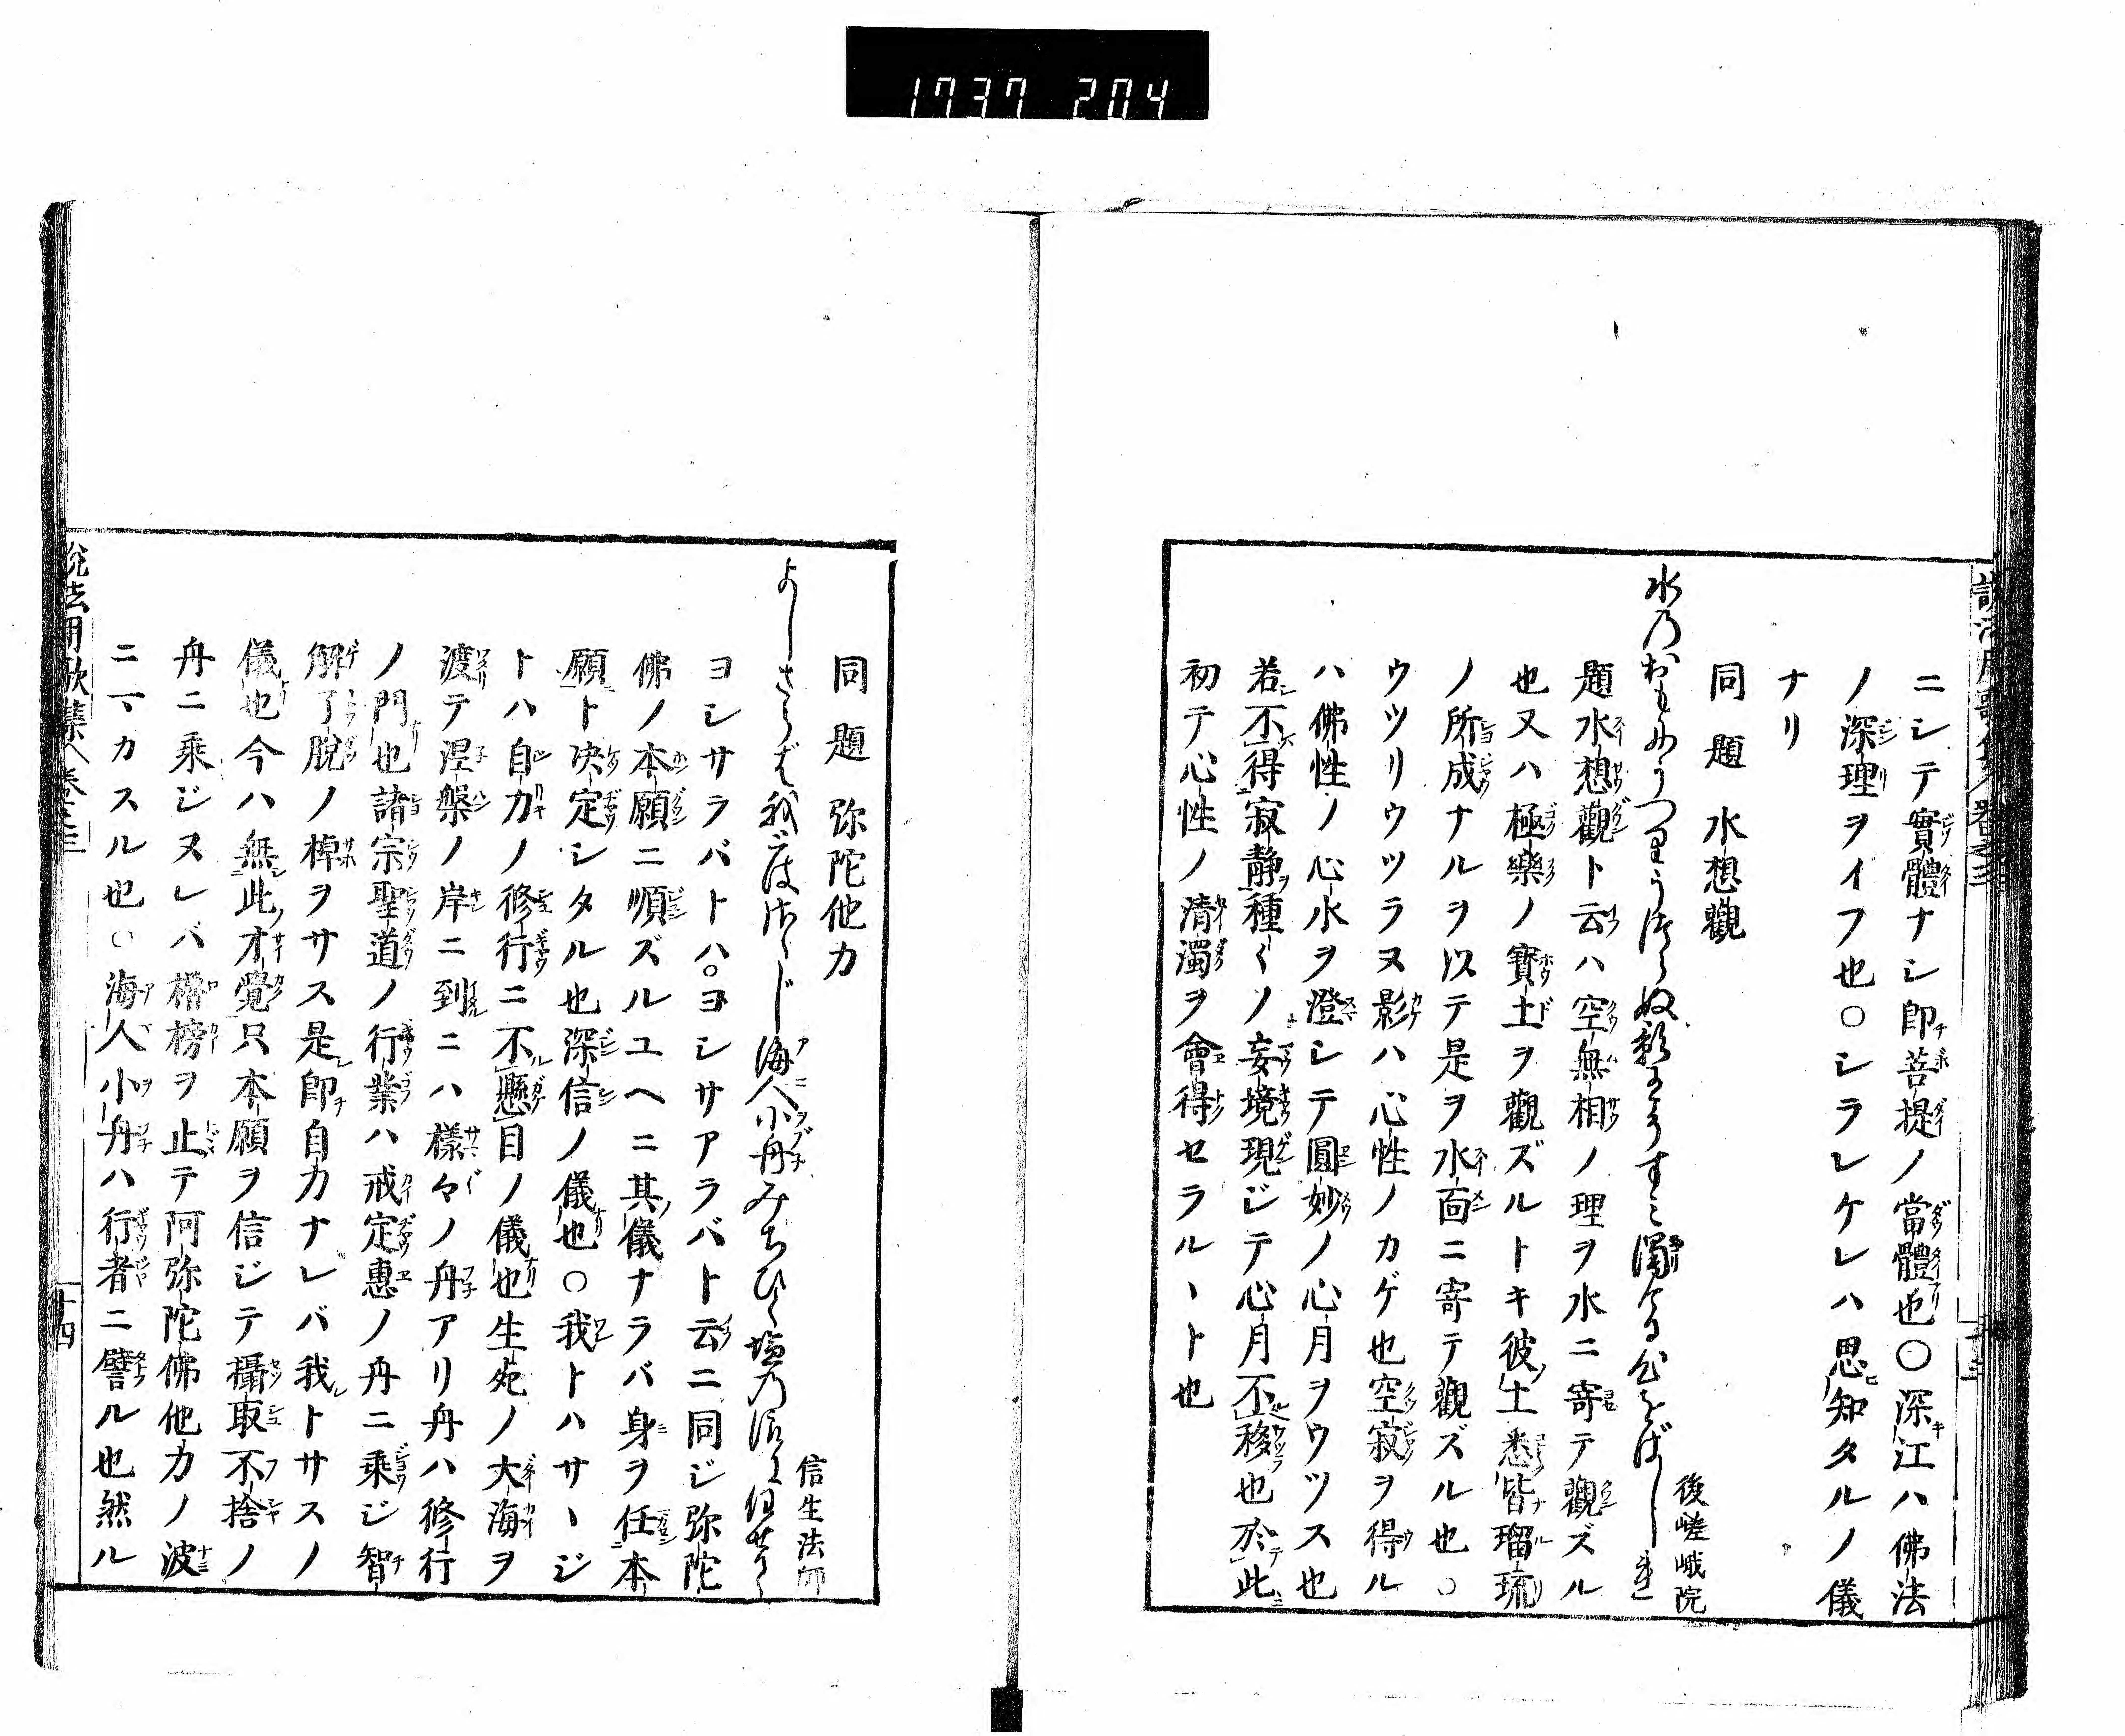 1737 204
ニシテ實體ナシ即菩提ノ當體也〇深江ハ佛法
ノ深理ヲイフ也〇シラレケレハ思知タルノ儀
ナリ
同題 水想觀
後嵯峨院
水乃おもにうつりうつらぬ影まですミ濁ける
題水想觀ト云ハ空無相ノ理ヲ水ニ寄テ觀ズル
也又ハ極樂ノ寶土ヲ觀ズルトキ彼土悉皆瑠琉
ノ所成ナルヲ以テ是ヲ水面ニ寄テ觀ズル也〇
ウツリウツラヌ影ハ心性ノカゲ也空寂ヲ得ル
ハ佛性ノ心水ヲ澄シテ圓妙ノ心月ヲウツス也
若不得寂静種〱ノ妄境現ジテ心月不移也於此
初テ心性ノ清濁ヲ會得セラルヽト也
同題 弥陀他力
信生法師
よしさらば我とはさゝじ海人小舟みちひく塩乃
ヨシサラバトハ〇ヨシサアラバト云ニ同ジ弥陀
佛ノ本願ニ順ズルユヘニ其儀ナラバ身ヲ任本
願ト决定シタル也深信ノ儀也〇我トハサヽジ
トハ自力ノ修行ニ不懸目ノ儀也生死ノ大海ヲ
渡テ涅槃ノ岸ニ到ニハ樣々ノ舟アリ舟ハ修行
ノ門也諸宗聖道ノ行業ハ戒定惠ノ舟ニ乘ジ智
解了脱ノ棹ヲサス是即自力ナレバ我トサスノ
儀也今ハ無此才覺只本願ヲ信ジテ攝取不捨ノ
舟ニ乘ジヌレバ櫓榜ヲ止テ阿弥陀佛他力ノ波
ニマカスル也〇海人小舟ハ行者ニ譬ル也然ル
説法用歌集 卷之三
十四